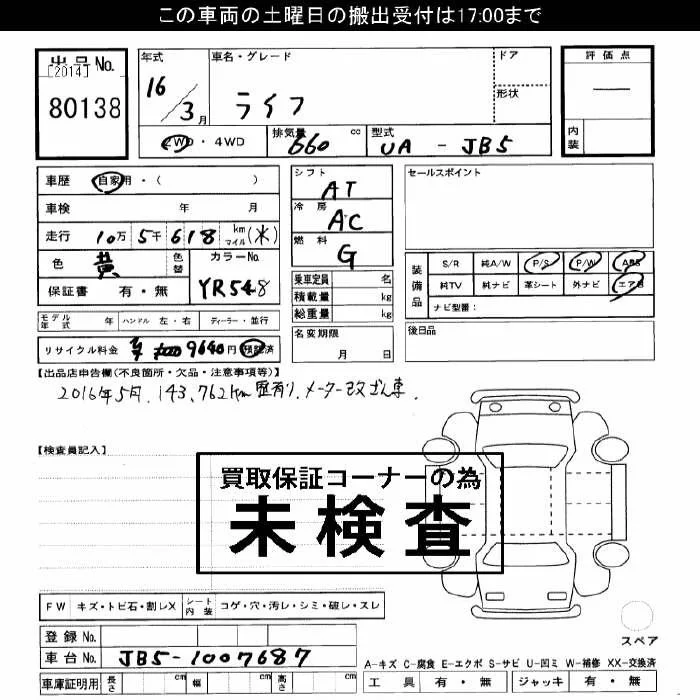 この車両の土曜日の搬出受付は17:00まで
出品No.
[2014]
80138
年式
16/3月
車名・グレード
ライフ
ドア
形状
評価点
—
内装
2WD・4WD
排気量 660 cc
型式 UA - JB5
車歴 自家用・( )
車検 年 月
走行 10万5千618 km マイル(米)
色 黄 色替
カラーNo. YR548
保証書 有・無
シフト AT
冷房 AC
燃料 G
セールスポイント
乗車定員 名
積載量 kg
総重量 kg
装備品
S/R 純A/W P/S P/W ABS
純TV 純ナビ 革シート 外ナビ エアB
ナビ型番:
モデル年式 年 ハンドル 左・右 ディーラー・並行
名変期限 月 日
後日品
リサイクル料金 9640円 預託済
【出品店申告欄(不良箇所・欠品・注意事項等)】
2016年5月.143,762km 歴有り.メーター改ざん車.
【検査員記入】
買取保証コーナーの為
未検査
FW キズ・トビ石・割レX シート内装 コゲ・穴・汚レ・シミ・破レ・スレ
登録No.
車台No. JB5-1007687
車庫証明用 長さ cm 幅 cm 高さ cm
スペア
A-キズ C-腐食 E-エクボ S-サビ U-凹ミ W-補修 XX-交換済
工具 有・無 ジャッキ 有・無